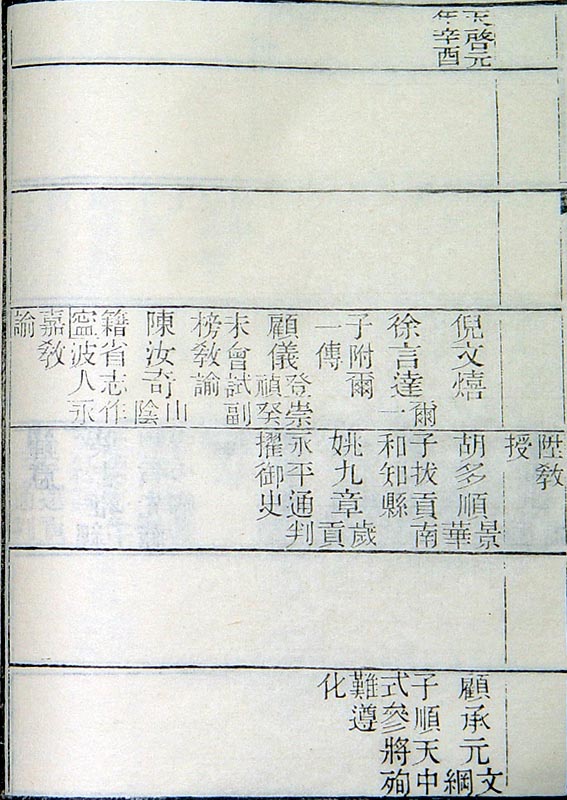 天啓元
年辛酉
倪文熺
徐言達爾一
子附爾
一傳
顧儀登崇禎癸
未會試副
榜敎諭
陳汝奇山陰
籍省志作
寧波人永
嘉敎
諭
陞敎
授
胡多順景華
子拔貢南
和知縣
姚九章歲貢
永平通判
擢御史
顧承元文綱
子順天中
式參將殉
難遵
化